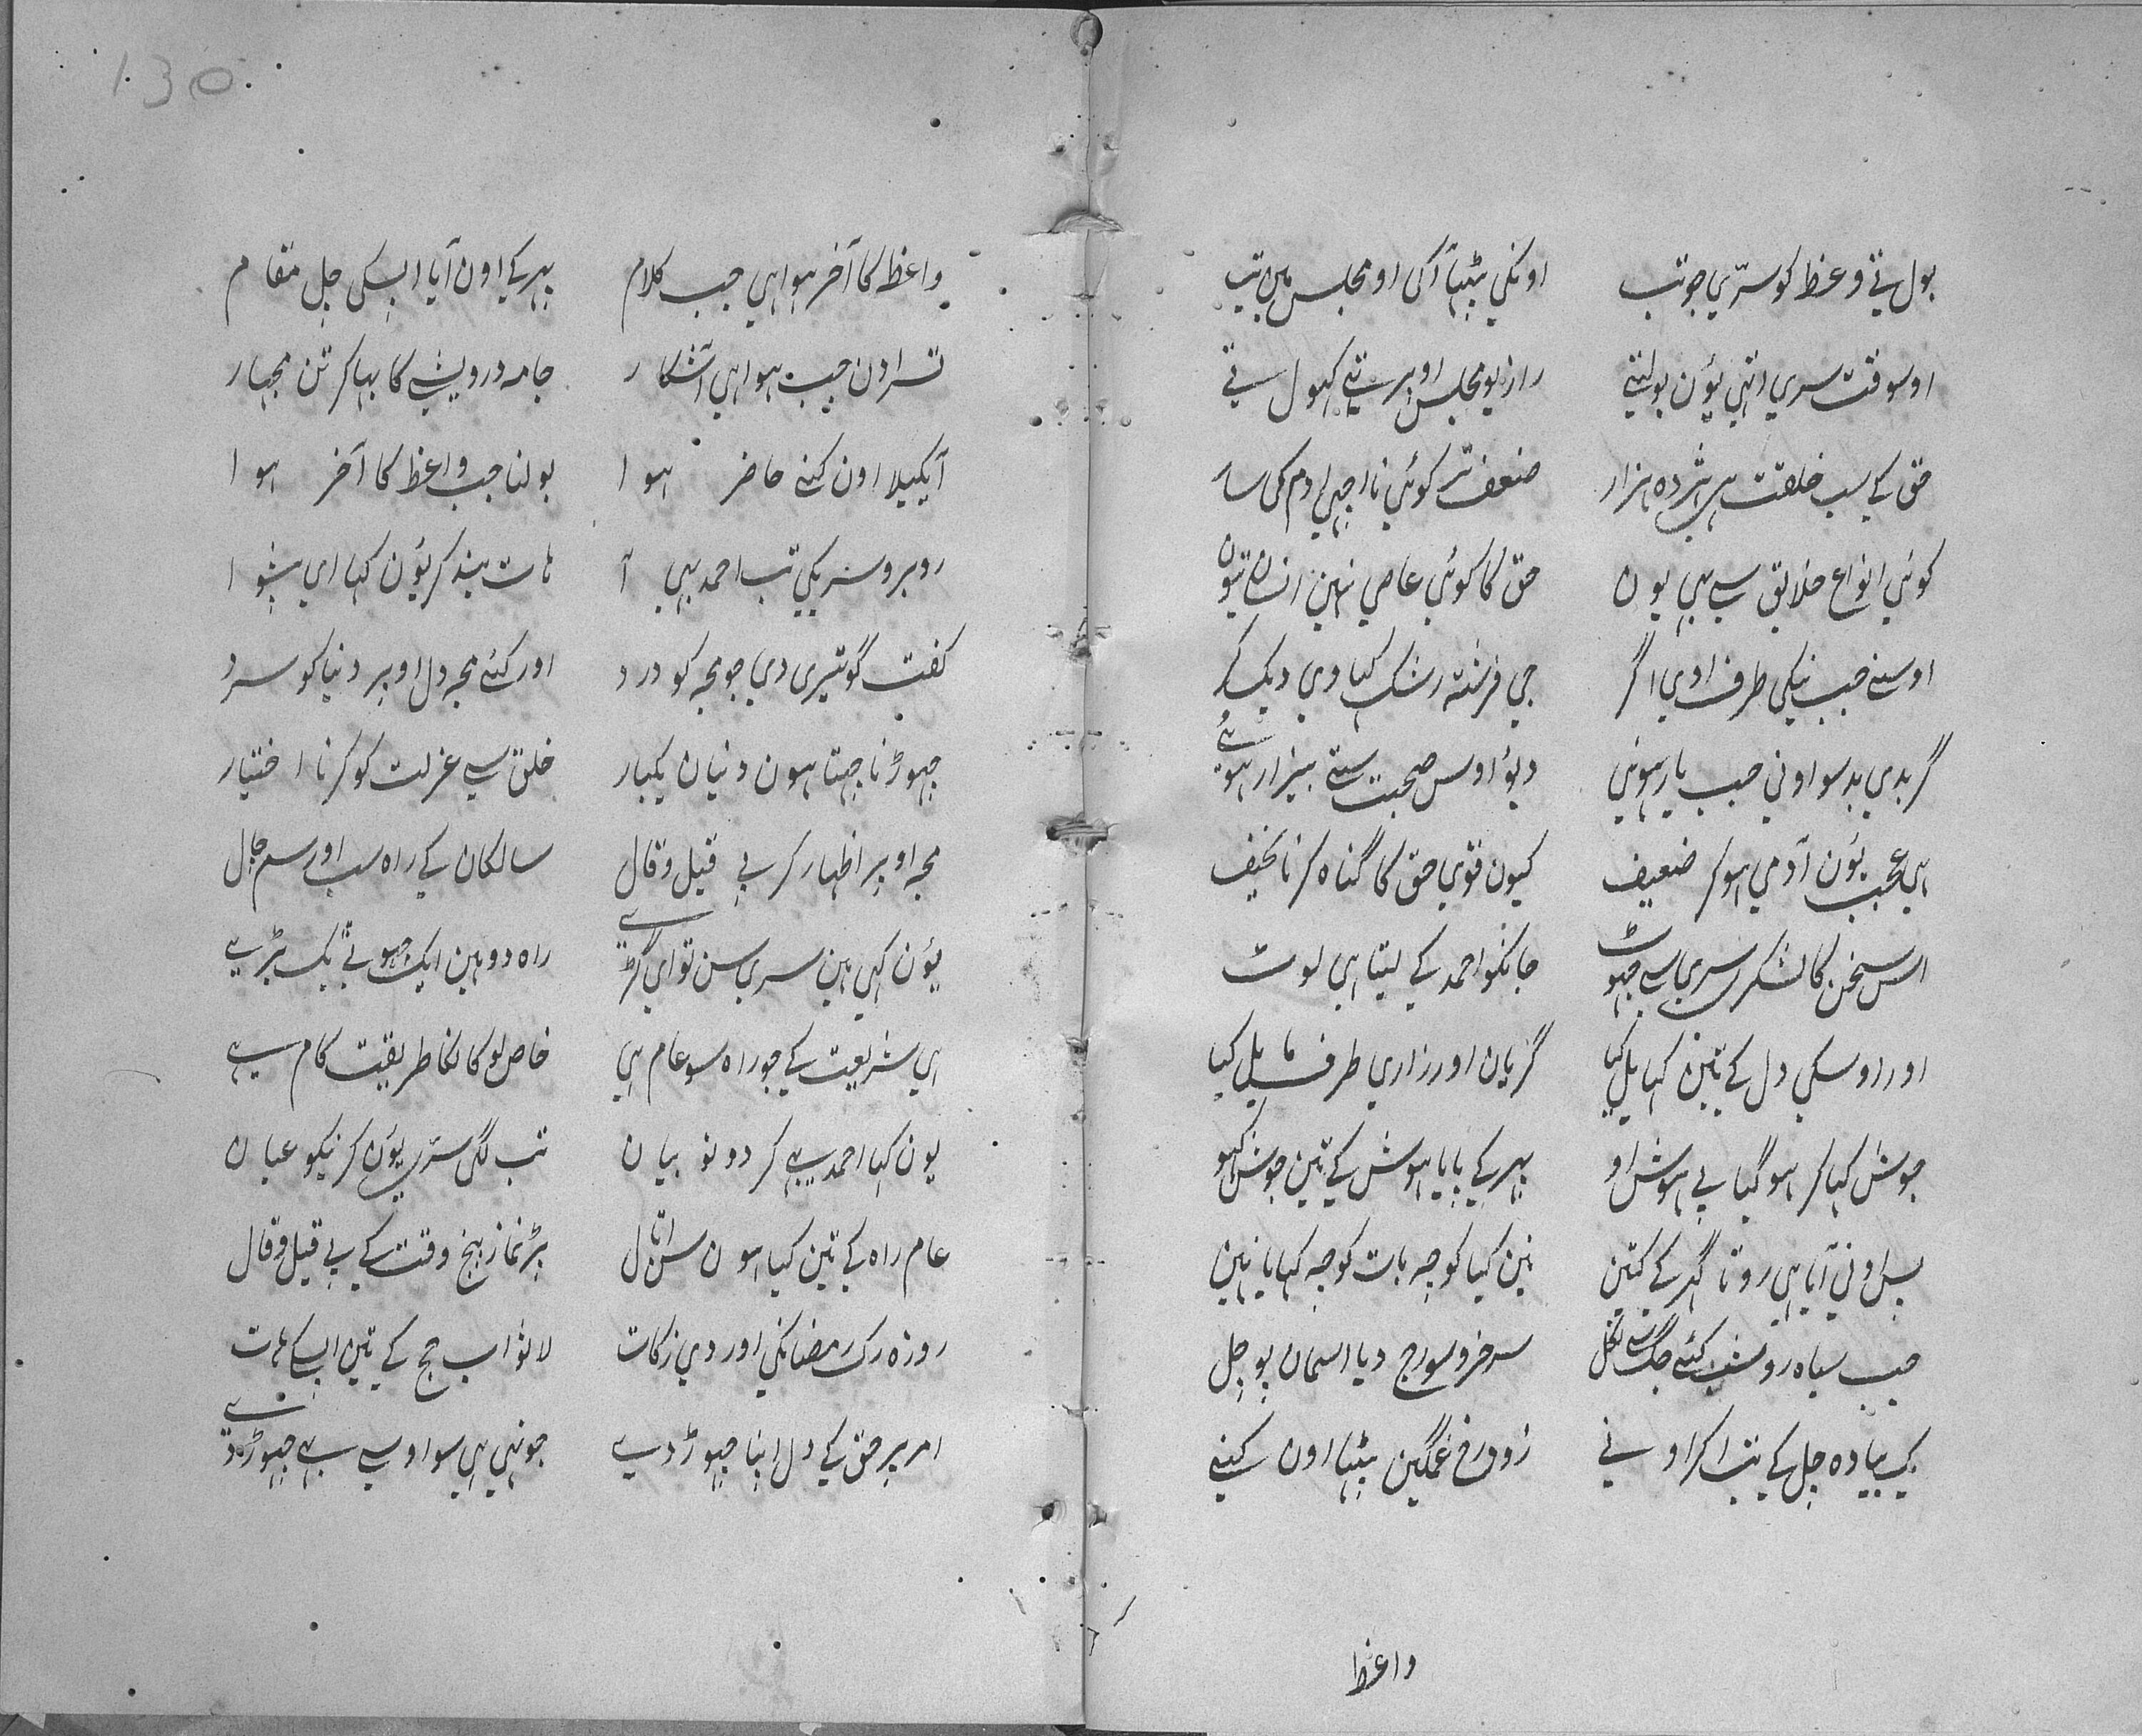 بول تی وعظ کو سرّی جو تب اونکی بیٹہا آکی او مجلس مین تب
اوسوقت سری اتھی یؤن بولتی راز یو مجلس اوپر تی کہول تی
حق کے سب خلقت ہی اژدہ ہزار ضعف تر کوئی نا اچہی ادم کی سار
کوئی انواع خلایق سے ہی یون حق کا کوئی عاصی نہین انسان نیون
اوسنے جب نیکی طرف اوی اگر جی فرشتہ رشک کہاوی دیک کر
گر بدی بدسو اونی جب یار ہوئی دیؤ اوس صحبت ستی بیزار ہوئے
ہی عجب یؤن آدمی ہو کر ضعیف کیون قوی حق کا گناہ کرنا نحیف
اس سخن کا لشکر سری سے چہوٹ جانکو احمد کے لیتا ہی لوٹ
اور اوسکی دل کے تین کہایل کیا گریان اور زاری طرف مایل کیا
جوش کہا کر ہو گیا بی ہوش او پہر کے پایا ہوش کے تین جوش کہو
پس اونی آیا ہی روتا گہر کے کتین نین کیا کوچہ بات کوچہ کہایا نہین
جب سیاہ رو شب کئے جگ سے نکل سرخرو سورج دیا اسمان پو چل
یک پیادہ چل کے تب اکر اونے زود رخ غمگین بیٹہا اون کینے
واعظ
واعظ کا آخر ہوا ہی جب کلام پہر کے اون آیا اپسکی چل مقام
تسرا دن جب ہوا ہی آشکار جامہ درویشی کا بہا کر تن مجہار
آیکیلا اون کنے حاضر ہوا بولنا جب واعظ کا آخر ہوا
روبرو سریکی تب احمد بہی آ ہات بند کر یؤن کہا ای پیشوا
کفت گو تیری دی جو مجہ کو درد اور کئے مجہ دل اوپر دنیا کو سرد
چہوڑنا چہتا ہون دنیان یکبار خلق سے عزلت کو کرنا اختیار
مجہ اوپر اظہار کر بے قیل و قال سالکان کے راہ سب اور رسم چال
یؤن کہی ہین سری سن تو ای راہ دو ہین ایک چہوٹے یک بڑے
ہی شریعت کے جو راہ سو عام ہی خاص لوکا نکا طریقیت کام ہے
یون کہا احمد سے کر دونو بیان تب لگی سرّی یؤن کرنیکو عیان
عام راہ کے تین کیا ہون سن اتال پڑ نماز پنج وقت کے بے قیل و قال
روزہ رک رمضانکی اور دی زکات لا ثواب حج کے تین اپسکے ہات
امر پر حق کے دل اپنا چہوڑ دے جو نہی ہی سو اوسے چہوڑ دے